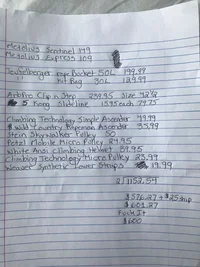 Metolius Sentinel 149
Metolius Express 109
Teufelberger rope Bucket 50L 199.99
kit Bag 30L 129.99
Arbpro Clip n Step 239.95 Size 42 1/2
5 Kong Slide line 15.95 each 79.75
Climbing Technology Simple Ascender 49.99
wild Country Ropeman Ascender 35.99
Stein Skywalker Pulley 50
Petzl Mobile Micro Pulley 24.95
White Ansi Climbing Helmet 59.95
Climbing Technology Micro Pulley 23.99
Weaver Synthetic Lower Straps 19.99
2 | 1152.54
$576.27 + $25 ship
$601.27
Fuck It
$600